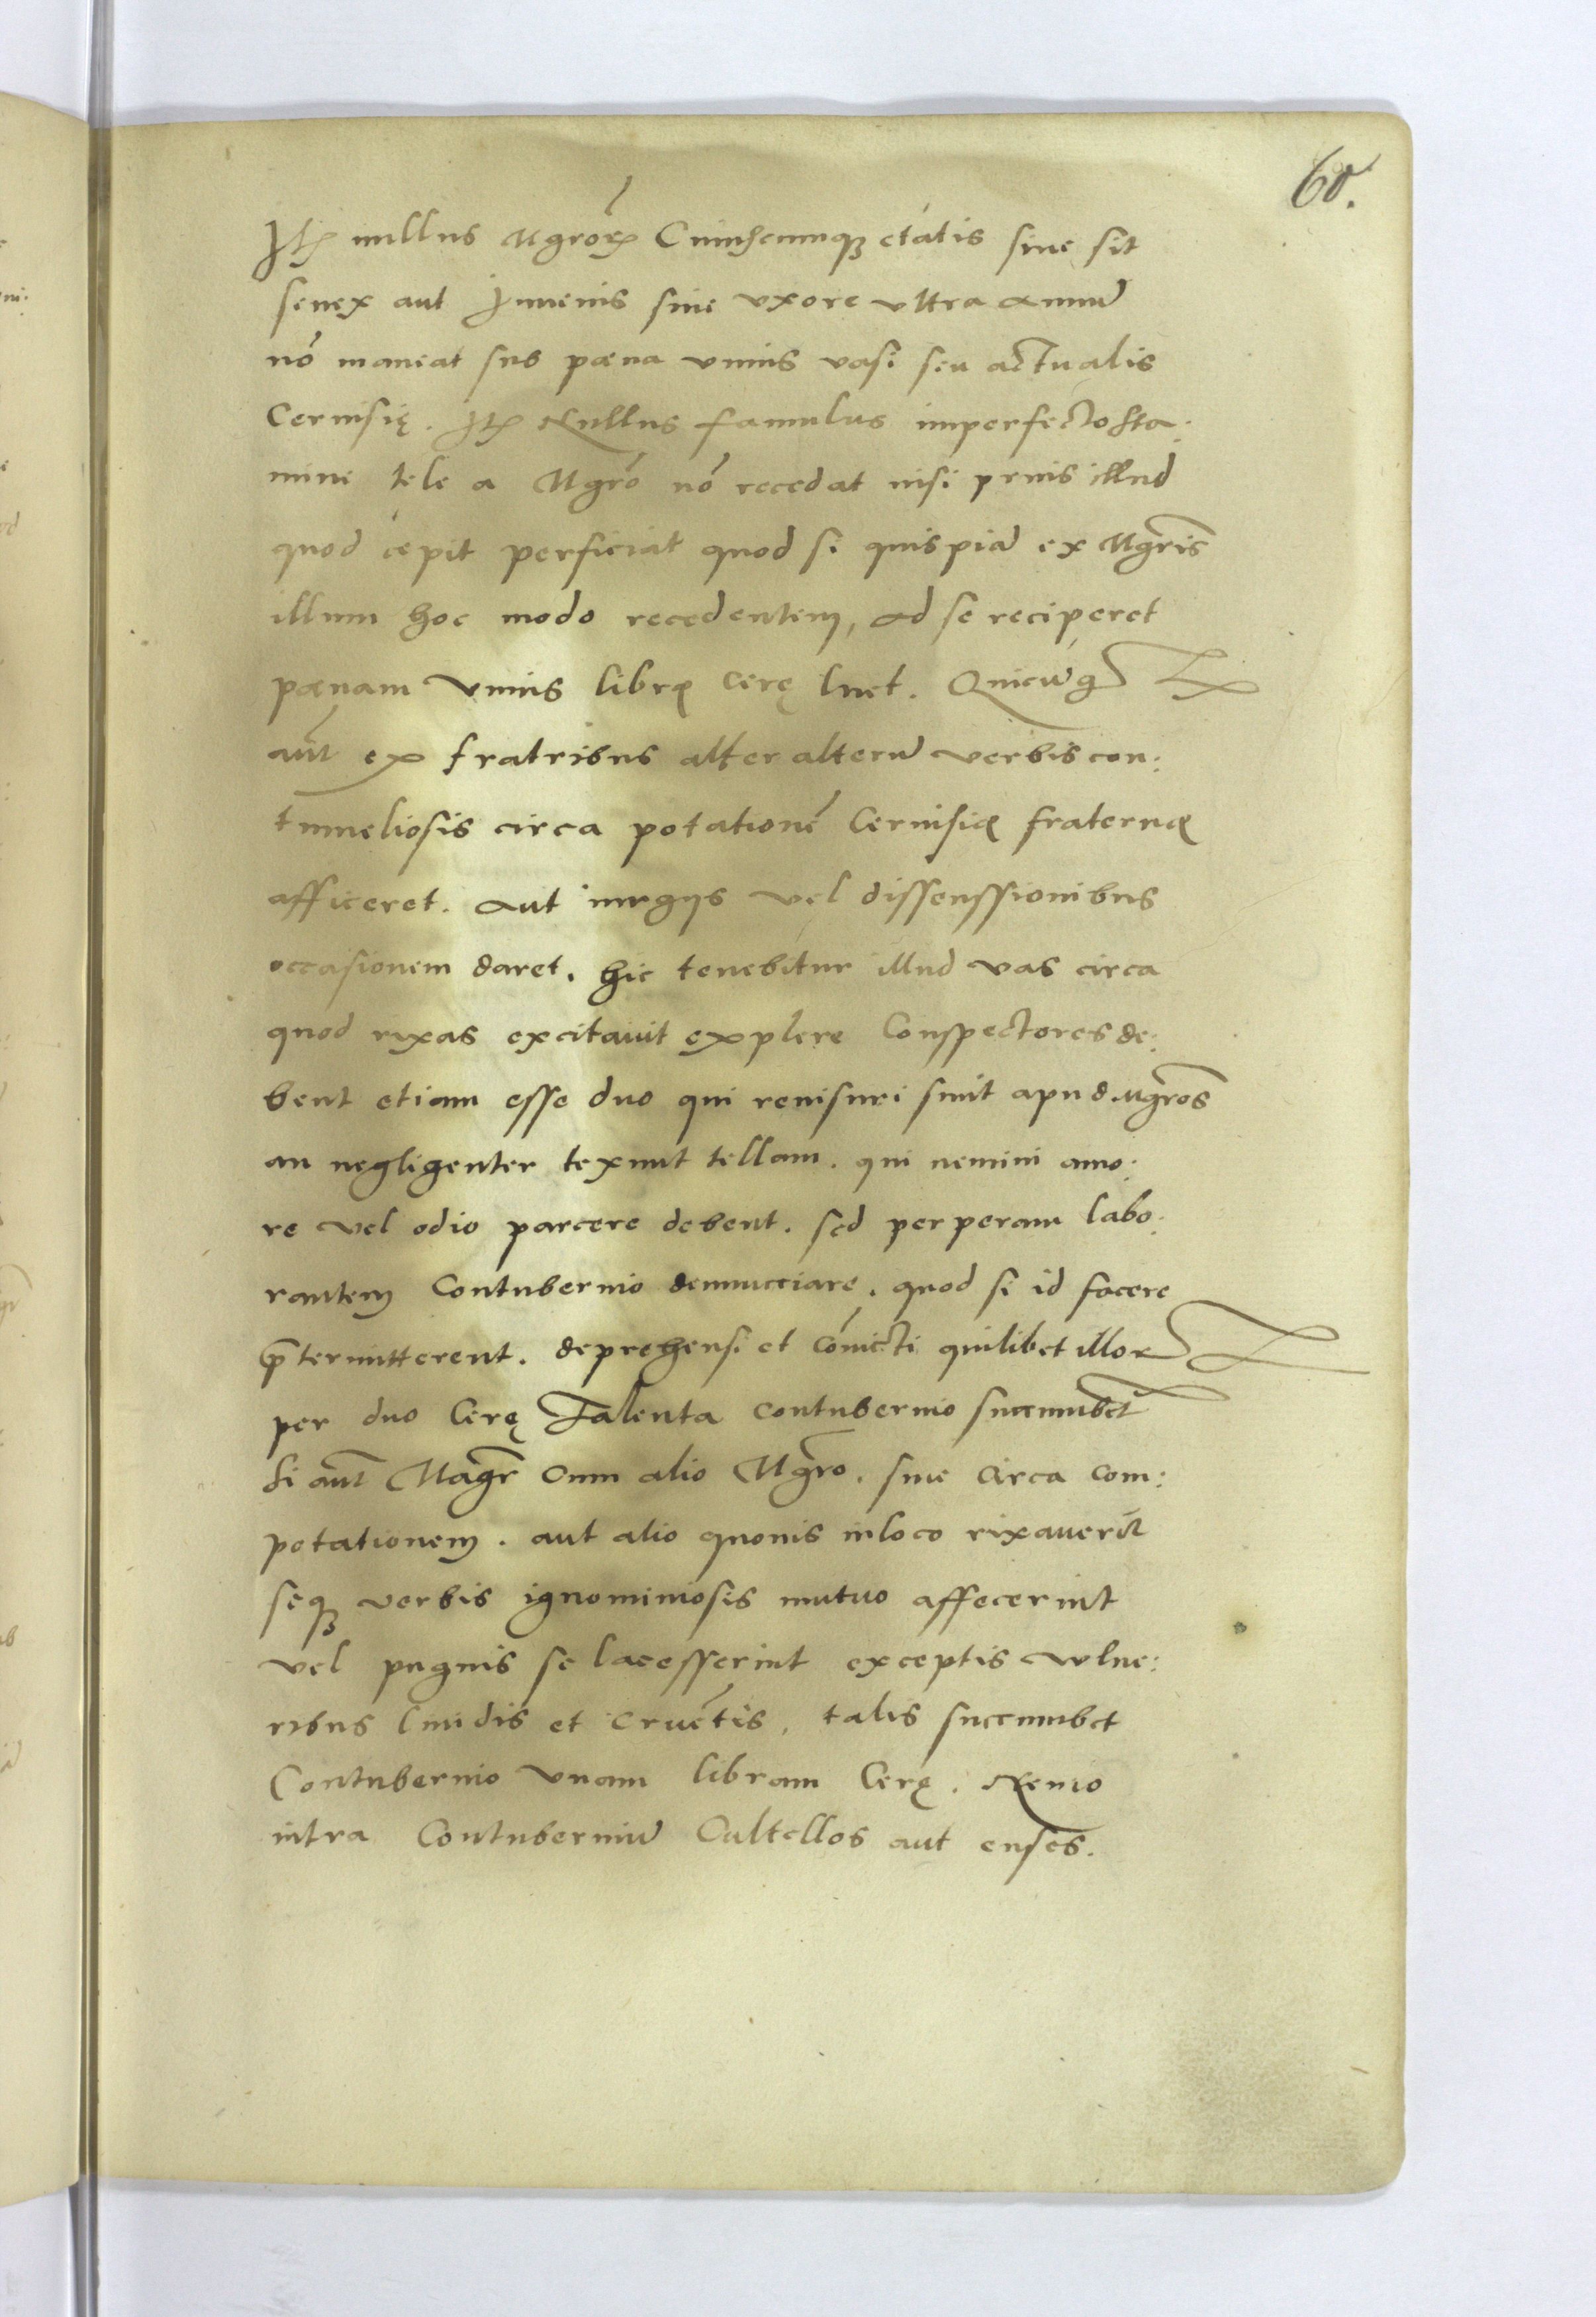 60.
Itē nullus Mgrorū Cuiuscumqȝ etatis siue sit
senex aut Iuuenis sine vxore vltra annū
nō maneat sub pæna vnius vasi seu actualis
Ceruisię. Itē Nullus famulus imperfecto sta:
mine tele a Mgrō nō recedat nisi prius illud
quod cepit perficiat quod si quispiā ex Mgris
illum hoc modo recedentem, ad se reciperet
pænam vnius libræ cerę luet. Quicūqȝ
aūt ex fratribus alter alterū verbis con:
tumeliosis circa potationē Ceruisiæ fraternæ
afficeret. aut iurgijs vel dissenssionibus
occasionem daret. hic tenebitur illud vas circa
quod rixas excitauit explere Conspectores de:
bent etiam esse duo qui reuisuri sunt apud Mgros
an negligenter texunt tellam. qui nemini amo:
re vel odio parcere debent. sed perperam labo:
rantem Contubernio denuncciare. quod si id facere
p̄termitterent. deprehensi et cōuicti quilibet illorū
per duo Cerę Talenta contubernio succumbet
Si aūt Magr̄ Cum alio Mgro. siue Circa com:
potationem. aut alio quouis in loco rixauerīt
seqȝ verbis ignominiosis mutuo affecerint
vel pugnis se lacesserint exceptis vulne:
ribus liuidis et cruētis, talis succumbet
Contubernio vnam libram Cerę. Nemo
intra Contuberniū Cultellos aut enses.